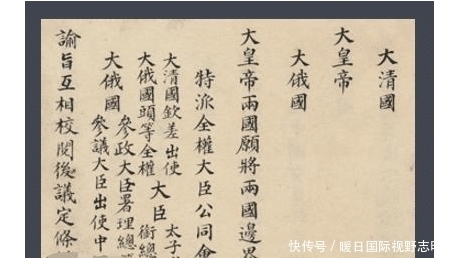 大清國
大皇帝
大俄國
大皇帝兩國願將兩國邊界
特派全權大臣公同會
大清國欽差出使
大俄國頭等全權大臣
太子
參政大臣署理總
銜總
大俄國
參議大臣出使中
諭旨互相校閱後議定條
快传号 / 暖日国际视野志